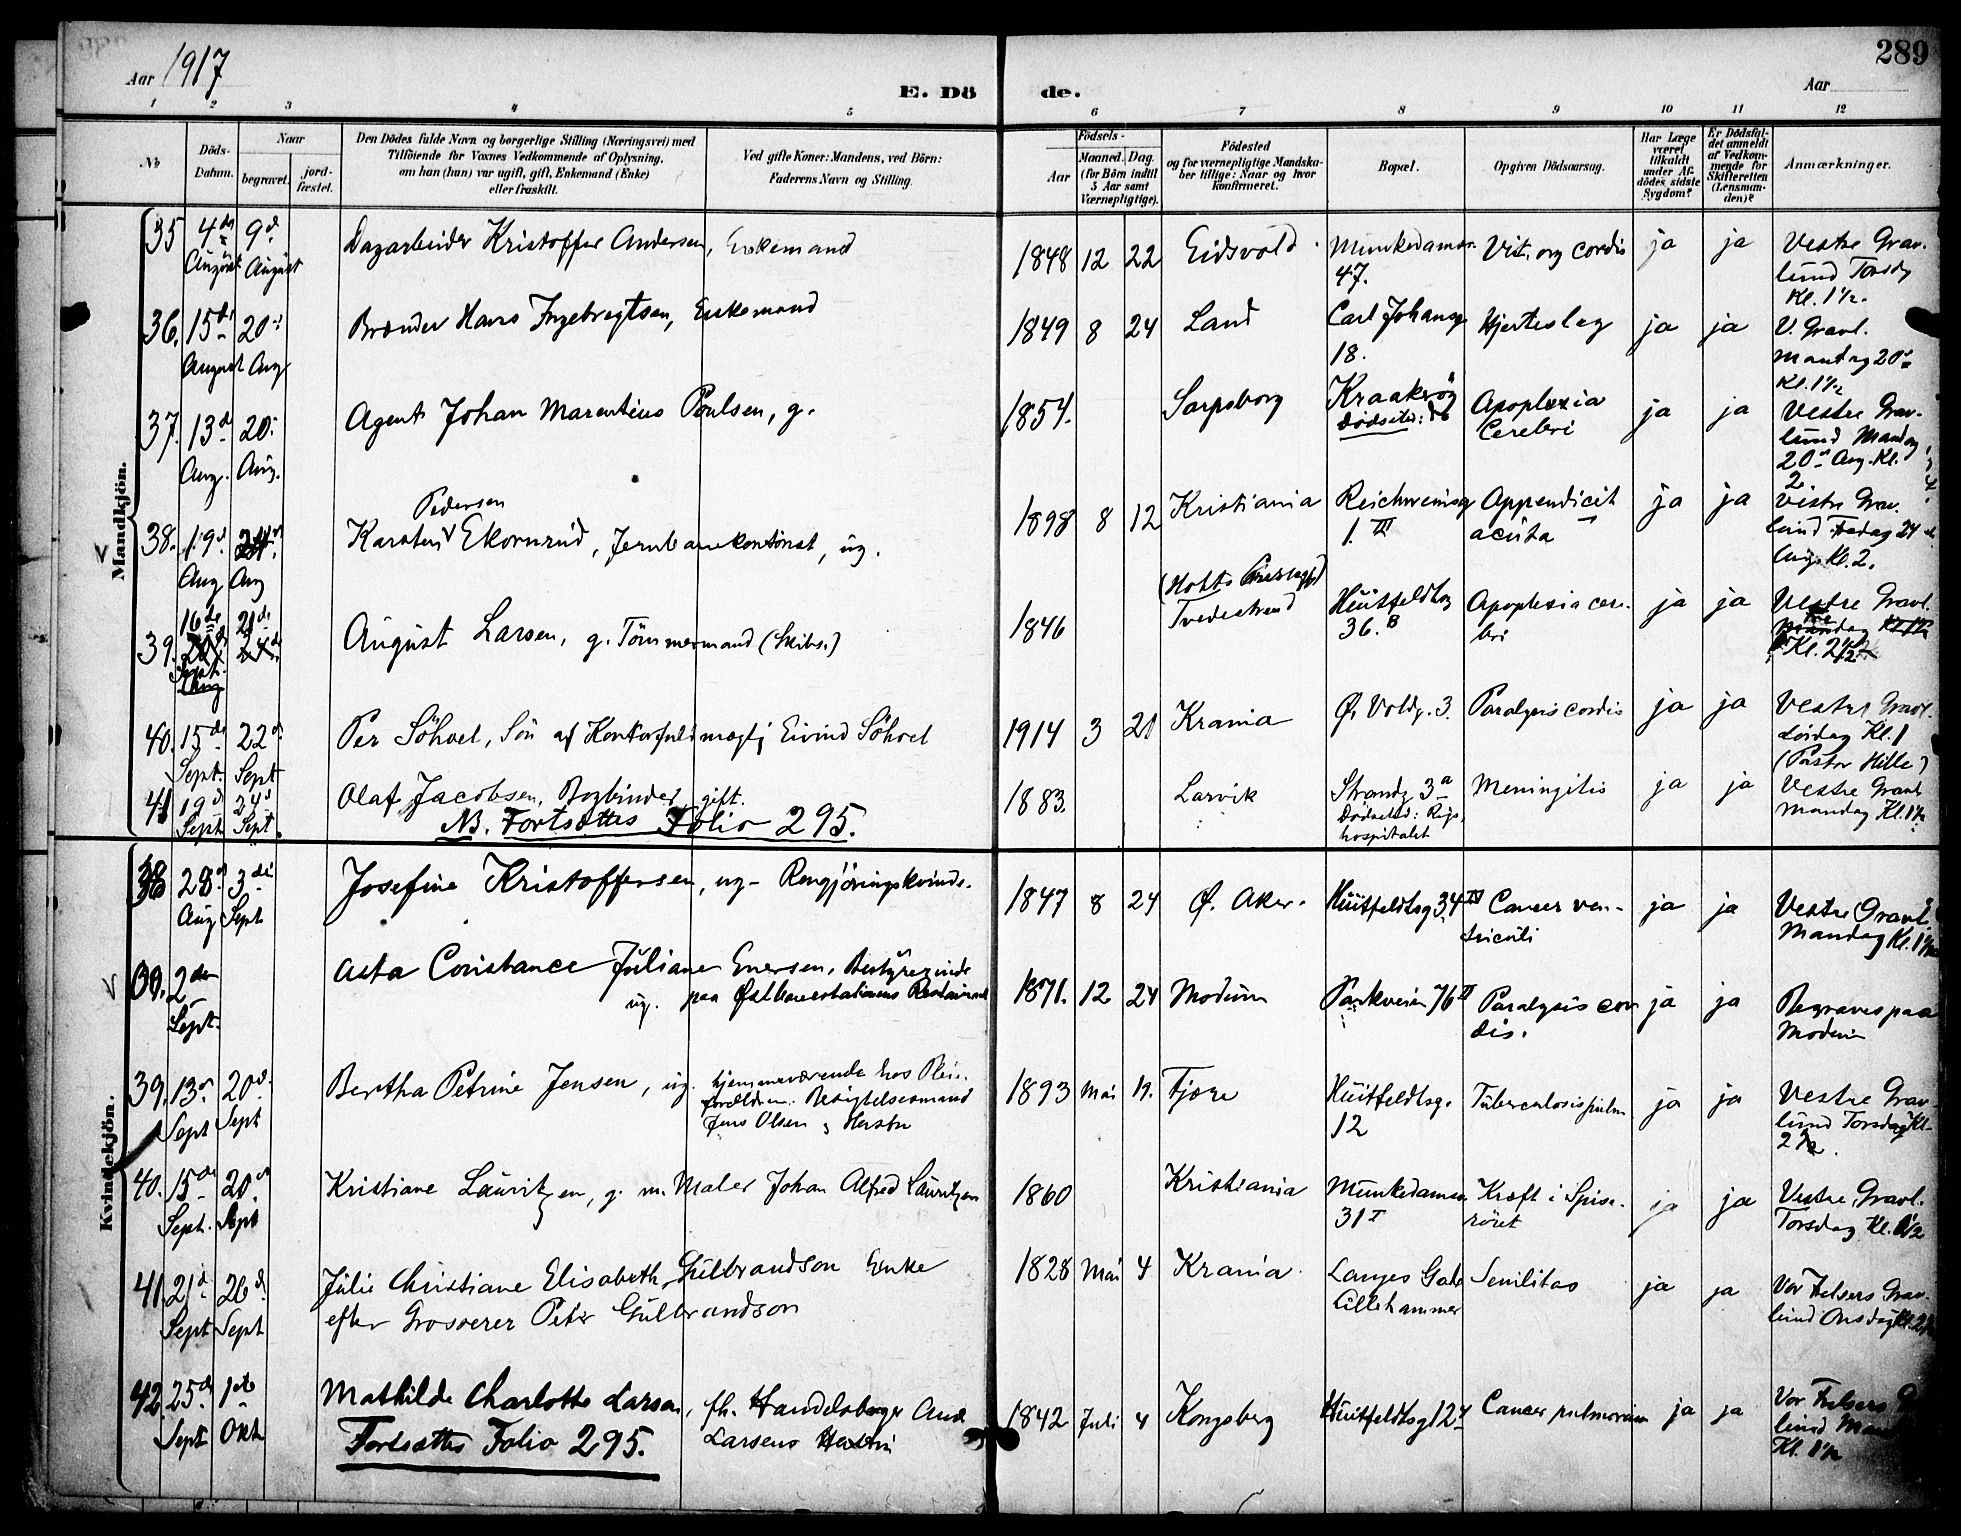 289
Aar 1917
E. Dö de.
Aar
1 2 3 4 5 6 7 8 9 10 11 12
No
Döds-
Datum.
Naar
begravet.
jord-
fæstet.
Den Dödes fulde Navn og borgerlige Stilling (Næringsvei) med
Tilföiende for Voxnes Vedkommende af Oplysning,
om han (hun) var ugift, gift, Enkemand (Enke)
eller fraskilt.
Ved gifte Koner: Mandens, ved Börn:
Faderens Navn og Stilling.
Födsels-
Aar
Maaned. Dag.
(for Börn indtil
5 Aar samt
Værnepligtige).
Födested
og for værnepligtige Mandska-
ber tillige: Naar og hvor
konfirmeret.
Bopæl.
Opgiven Dödsaarsag.
Har Læge
været
tilkaldt
under Af-
dödes sidste
Sygdom?
Er Dödsfal-
det anmeldt
af Vedkom-
mende for
Skifteretten
(Lensman-
den)?
Anmærkninger.
Mandkjön.
35 4de August 9de August Dagarbeider Kristoffer Andersen, Enkemand 1848 12 22 Eidsvold Munkedamsv. 47. Vit. org cordis ja ja Vestre Grav-
lund Torsdg
Kl. 1½.
36. 15de August 20de Aug Hans Ingebregtsen, Enkemand 1849 8 24 Land Carl Johansg 18. Hjerteslag ja ja V. Gravl.
Mandag 20de
Kl. 1½
37. 13de Aug. 20de Aug. Agent Johan Marentius Poulsen, g. 1854. Sarpsborg Kraakerøy
Dødssted: Apoplexia
Cerebri ja ja Vestre Grav-
lund Mandag
20de Aug. Kl.
2
38. 19de Aug 24de Aug Karsten Pedersen Ekornrud, Jernbanekontorist, ug. 1898 8 12 Kristiania Reichweinsg
1. III Appendicit
acuta ja ja Vestre Grav-
lund Fredag 24de
Aug. Kl. 2.
39. 16de Sept. 21de August Larsen, g. Tömmermand (Skibs.) 1846 (Holts Præstegj)
Tvedestrand Huitfeldtsg
36.B Apoplexia cere-
bri ja ja Vestre Gravl.
Kl. 2½
40. 15de Sept. 22de Sept Per Söhoel, Sön af Kontorfuldmægtig Eivind Söhoel 1914 3 20 Krania Ø. Voldg. 3. Paralysis cordis ja ja Vestre Gravl.
Lördag Kl. 1
(Pastor Hille)
41 19de Sept 24de Sept Olaf Jacobsen, Bogbinder, gift. 1883 Larvik Strandg 3a
Dödssted: Rigs-
hospitalet Meningitis ja ja Vestre Gravl
Mandag Kl. 1½
NB. Fortsættes Folio 295.
Kvindekjön.
28de Aug 3die Sept Josefine Kristoffersen, ug- Rengjöringskvinde. 1847 8 24 Ø. Aker. Huitfeldtsg 34 IV Cancer ven-
triculi ja ja Vestre Gravl.
Mandag Kl. 1½
2den Sept. Asta Constance Juliane Enersen, Bestyrerinde
ug. paa Østbanestationens Restaurant 1871. 12 24 Modum Parkveien 76 II Paralysis cor-
dis. ja ja Begraves paa
Modum
39. 13de Sept 20de Sept Bertha Petrine Jensen, ug. hjemmeværende hos Plei-
forældrene. Besigtelsesmand
Jens Olsen og Hustru 1893 Mai Fjære Huitfeldtsg.
12 Tuberculosis pulm ja ja Vestre Grav-
lund Torsdag Kl.
2½.
40. 15de Sept. 20de Sept Kristiane Lauritzen, g. m. Maler Johan Alfred Lauritzen 1860 Kristiania Munkedamsv
31 I Kræft i Spise-
röret ja ja Vestre Gravl.
Torsdag Kl. 1½
41. 21de Sept 26de Sept Julie Christiane Elisabeth Gulbrandson Enke
efter Grosserer Peter Gulbrandson 1828 Mai 4 Krania Langes Gade
Lillehammer Senilitas ja ja Vor Frelsers Grav-
lund Onsdag Kl. 2½
42. 25de Sept 1ste Okt Mathilde Charlotte Larsen, fh. Handelsborger And.
Larsens Hustru 1842 Juli 4 Kongsberg Huitfeldtsg 12 Cancer pulmonum ja ja Vor Frelsers
lund
Kl. 1½
Fortsættes Folio 295.